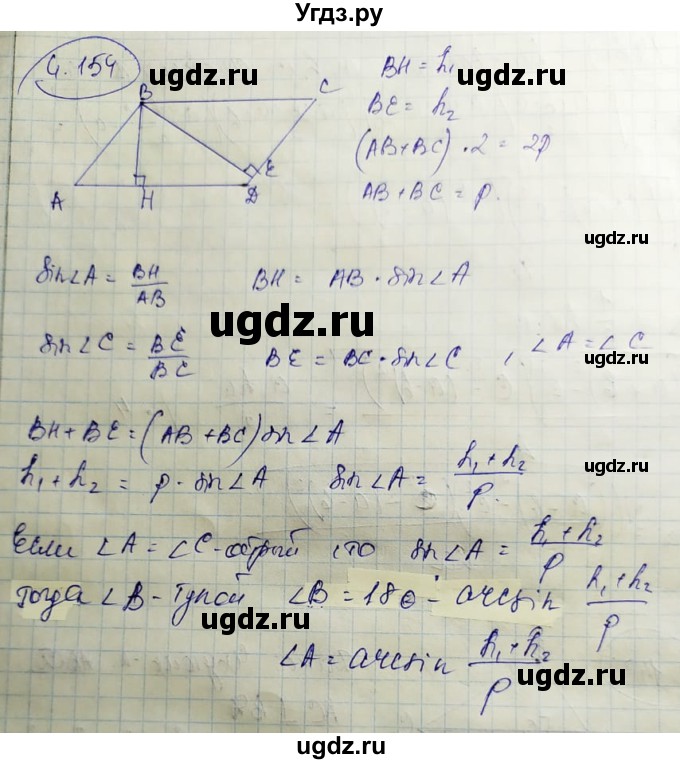 Угдз.ру
4.154
ugdz.ru
B
C
A
H
D
E
BH = h₁
BE = h₂
(AB+BC)·2 = 2p
AB + BC = p.
ugdz.ru
ugdz.ru
sin∠A = BH/AB
BH = AB · sin∠A
ugdz.ru
sin∠C = BE/BC
BE = BC · sin∠C , ∠A = ∠C
BH + BE = (AB + BC) sin∠A
ugdz.ru
h₁ + h₂ = p · sin∠A
sin∠A = (h₁ + h₂)/p.
ugdz.ru
Если ∠A = ∠C - острый , то sin∠A = (h₁ + h₂)/p
тогда ∠B - тупой ∠B = 180° - arcsin (h₁ + h₂)/p
ugdz.ru
ugdz.ru
∠A = arcsin (h₁ + h₂)/p
ugdz.ru
ugdz.ru